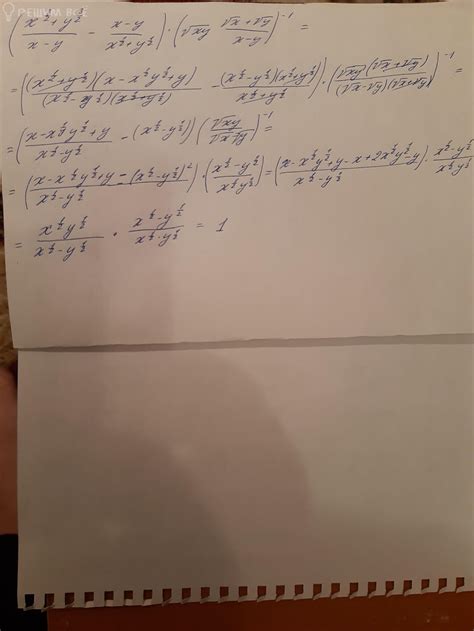 РЕШИМ ВСЁ
(x^{3/2}+y^{3/2}/x-y - x-y/x^{1/2}+y^{1/2}) · (√xy √x+√y/x-y)^{-1} =
=((x^{1/2}+y^{1/2})(x-x^{1/2}y^{1/2}+y)/(x^{1/2}-y^{1/2})(x^{1/2}+y^{1/2}) - (x^{1/2}-y^{1/2})(x^{1/2}+y^{1/2})/x^{1/2}+y^{1/2}) · (√xy(√x+√y)/(√x-√y)(√x+√y))^{-1} =
=(x-x^{1/2}y^{1/2}+y/x^{1/2}-y^{1/2} - (x^{1/2}-y^{1/2})) (√xy/√x-√y)^{-1} =
=(x-x^{1/2}y^{1/2}+y-(x^{1/2}-y^{1/2})^2/x^{1/2}-y^{1/2}) · (x^{1/2}-y^{1/2}/x^{1/2}y^{1/2})=(x-x^{1/2}y^{1/2}+y-x+2x^{1/2}y^{1/2}-y/x^{1/2}-y^{1/2}) · x^{1/2}-y^{1/2}/x^{1/2}y^{1/2}
= x^{1/2}y^{1/2}/x^{1/2}-y^{1/2} · x^{1/2}-y^{1/2}/x^{1/2}-y^{1/2} = 1